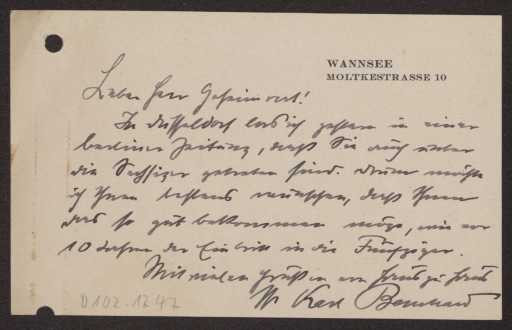 WANNSEE
MOLTKESTRASSE 10
Lieber Herr Geheimrat!
In Düsseldorf las ich gestern in einer
berliner Zeitung, daß Sie auch unter
die Sechziger getreten sind. Darum möchte
ich Ihnen bestens wünschen, daß Ihnen
das so gut bekommen möge, wie vor
10 Jahren der Eintritt in die Fünfziger.
Mit vielen Grüßen von Haus zu Haus
Ihr Karl Bernhard
D102.1247